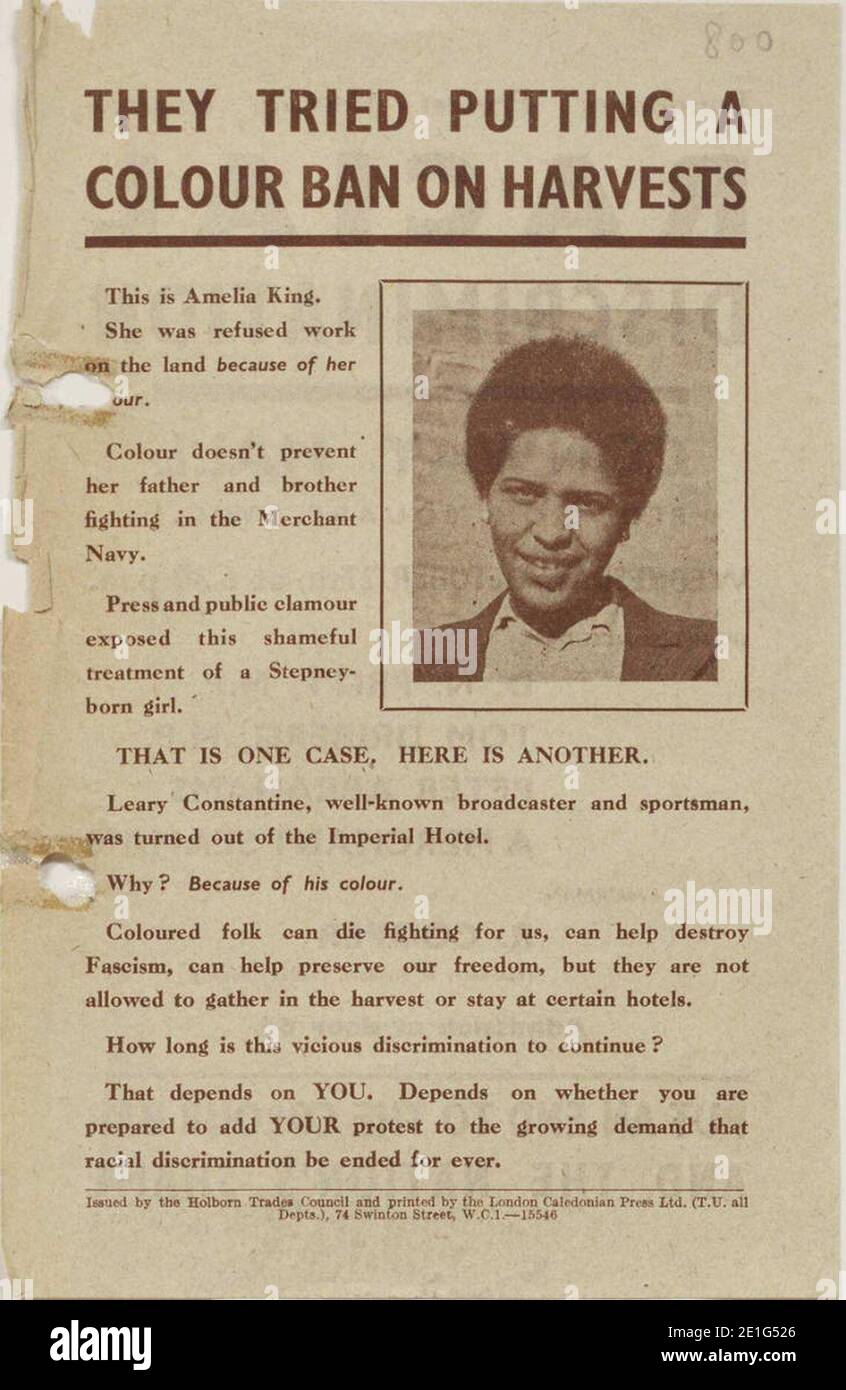 800
THEY TRIED PUTTING A
COLOUR BAN ON HARVESTS
This is Amelia King.
She was refused work
on the land because of her
our.
Colour doesn't prevent
her father and brother
fighting in the Merchant
Navy.
Press and public clamour
exposed this shameful
treatment of a Stepney-
born girl.
THAT IS ONE CASE. HERE IS ANOTHER.
Leary Constantine, well-known broadcaster and sportsman,
was turned out of the Imperial Hotel.
Why? Because of his colour.
Coloured folk can die fighting for us, can help destroy
Fascism, can help preserve our freedom, but they are not
allowed to gather in the harvest or stay at certain hotels.
How long is this vicious discrimination to continue?
That depends on YOU. Depends on whether you are
prepared to add YOUR protest to the growing demand that
racial discrimination be ended for ever.
Issued by the Holborn Trades Council and printed by the London Caledonian Press Ltd. (T.U. all
Depts.), 74 Swinton Street, W.C.1.—15546
alamy
alamy
Image ID: 2E1G526
www.alamy.com